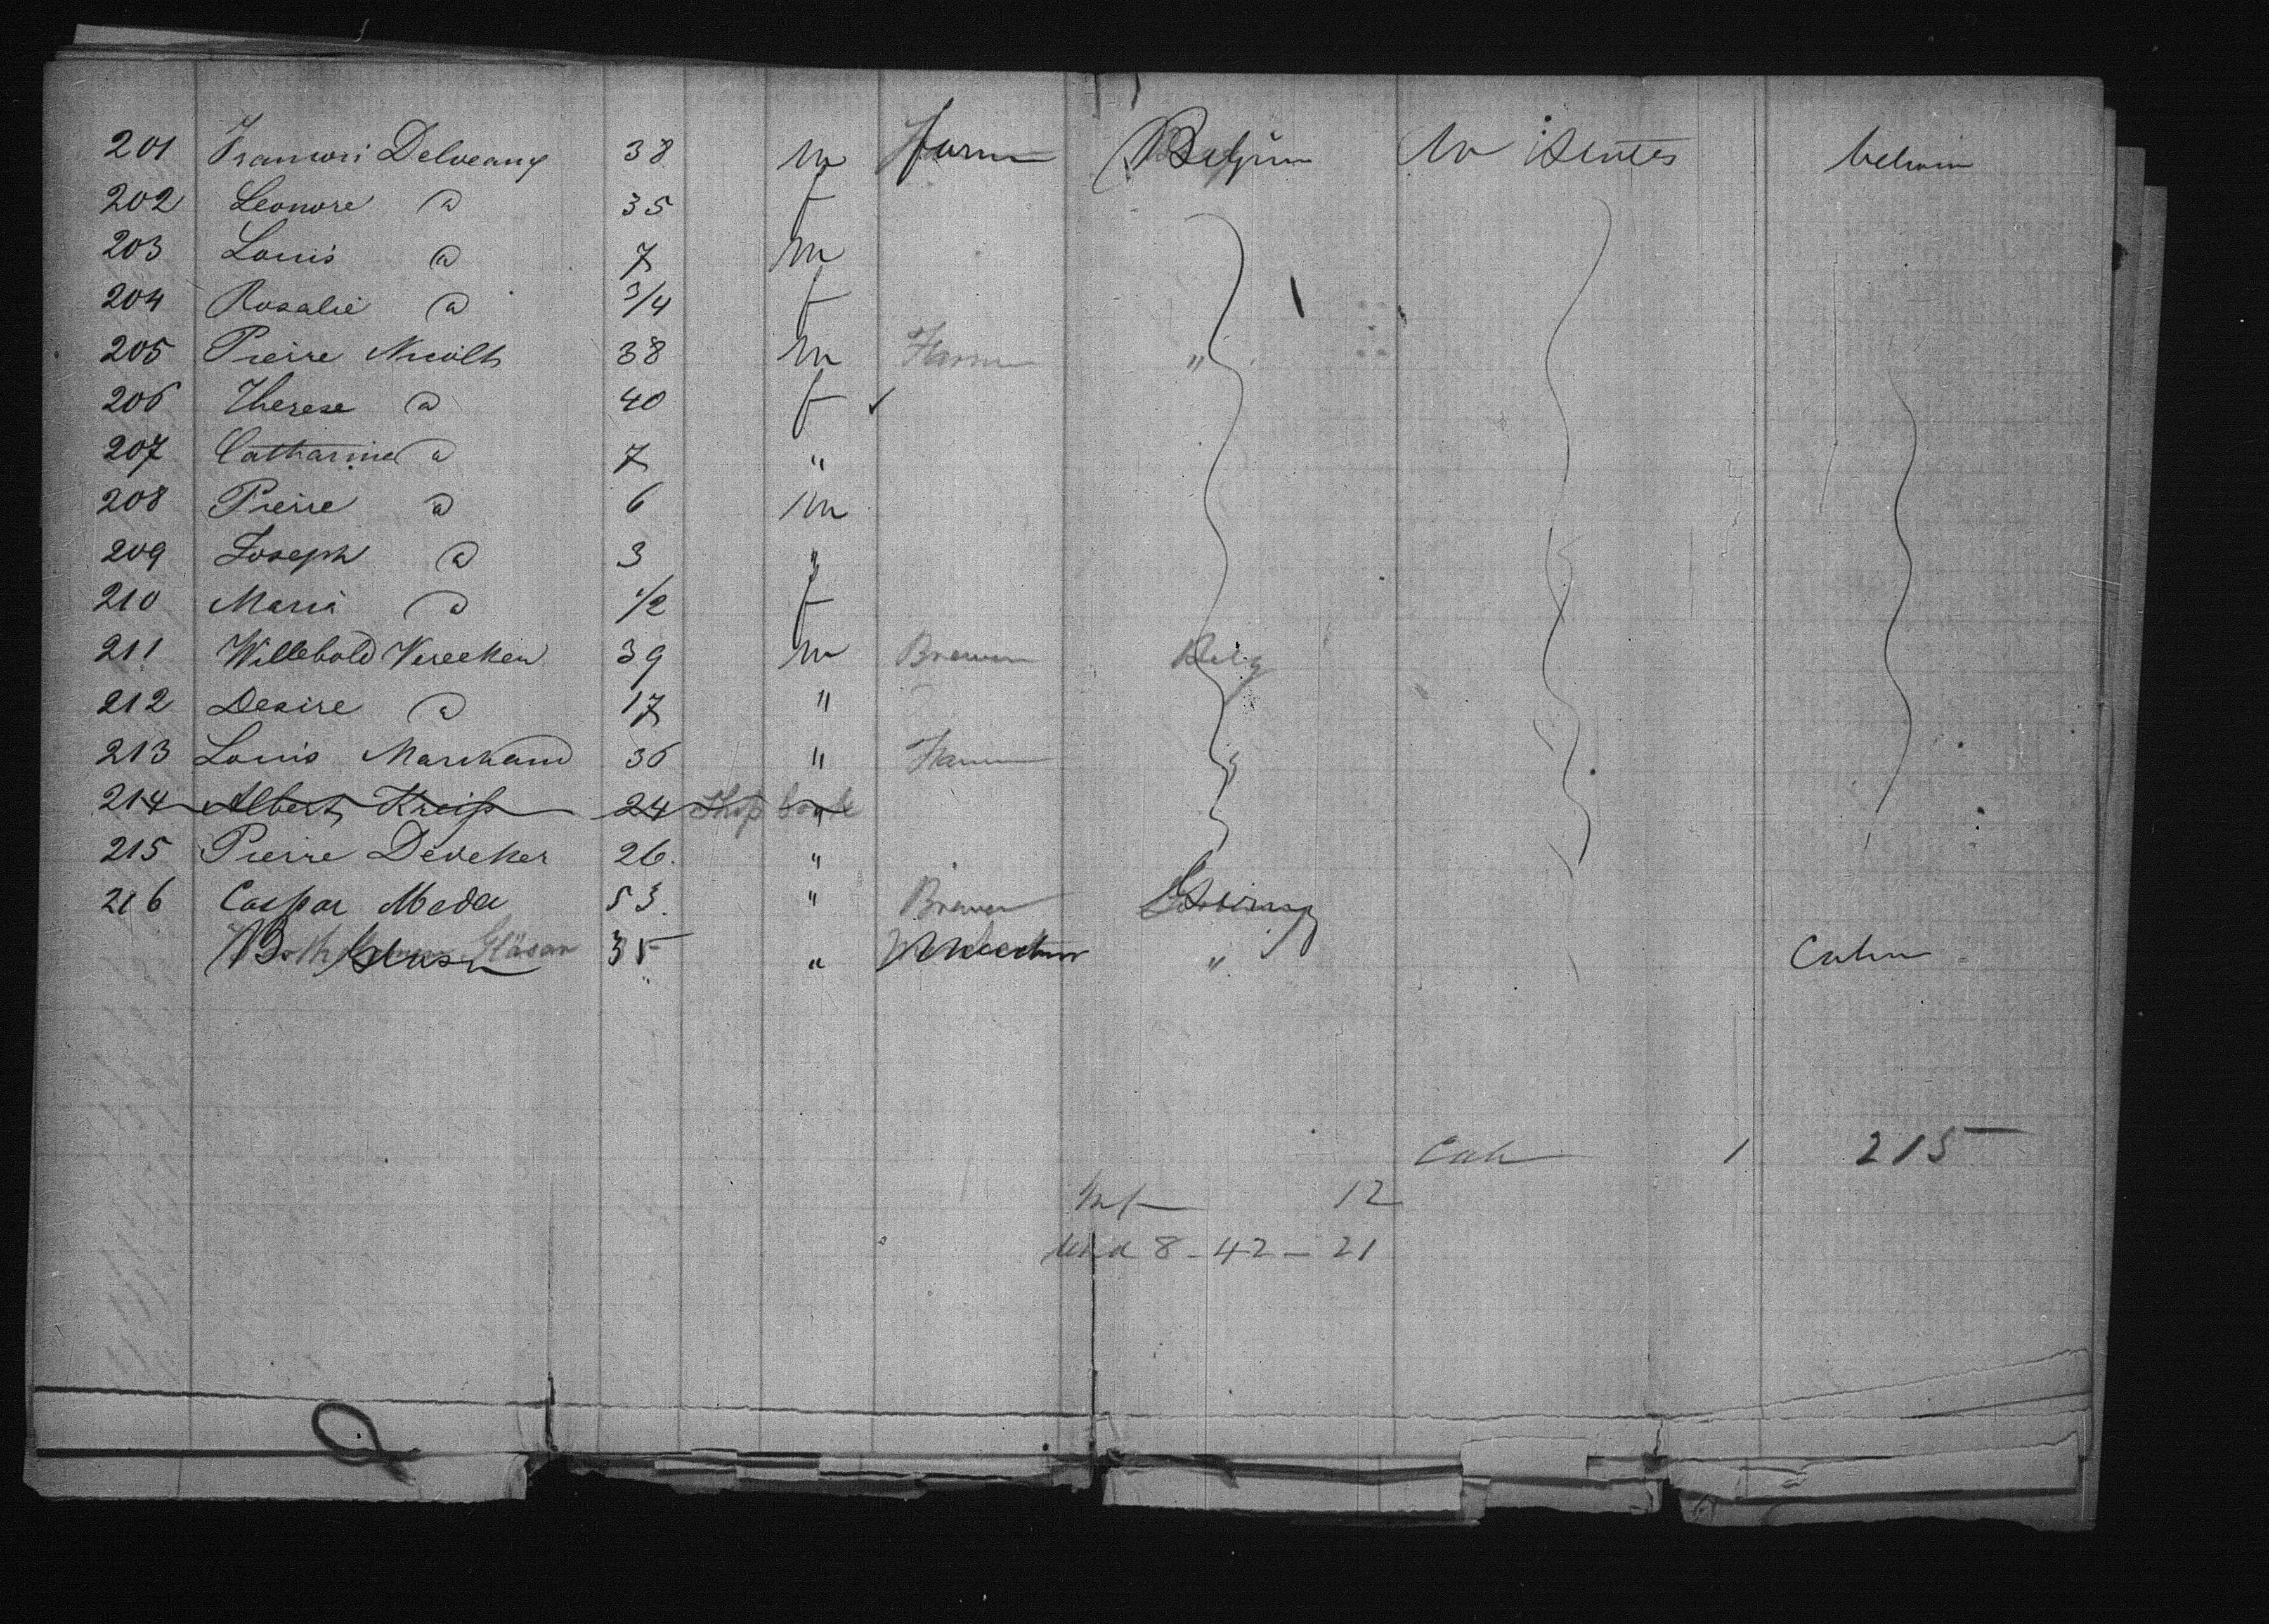 201 Francois Delveaux 38 m Farm Belgium Un States between
202 Leonore " 35 f
203 Louis " 7 m
204 Rosalie " 3/4 f
205 Pierre Nicolts 38 m Farm "
206 Therese " 40 f
207 Catharine " 7 "
208 Pierre " 6 m
209 Joseph " 3 "
210 Maria " 1/2 f
211 Willebold Vereeken 39 m Brewer Belg
212 Desire " 17 "
213 Louis Marchand 36 " Farm "
214 Albert Kreiß 24 "
215 Pierre Deveker 26. "
216 Caspar Meda 53. " Brewer Germany
Gläsar 35 " " Cabin
Cab 1 215
Inf 12
Und 8 - 42 - 21